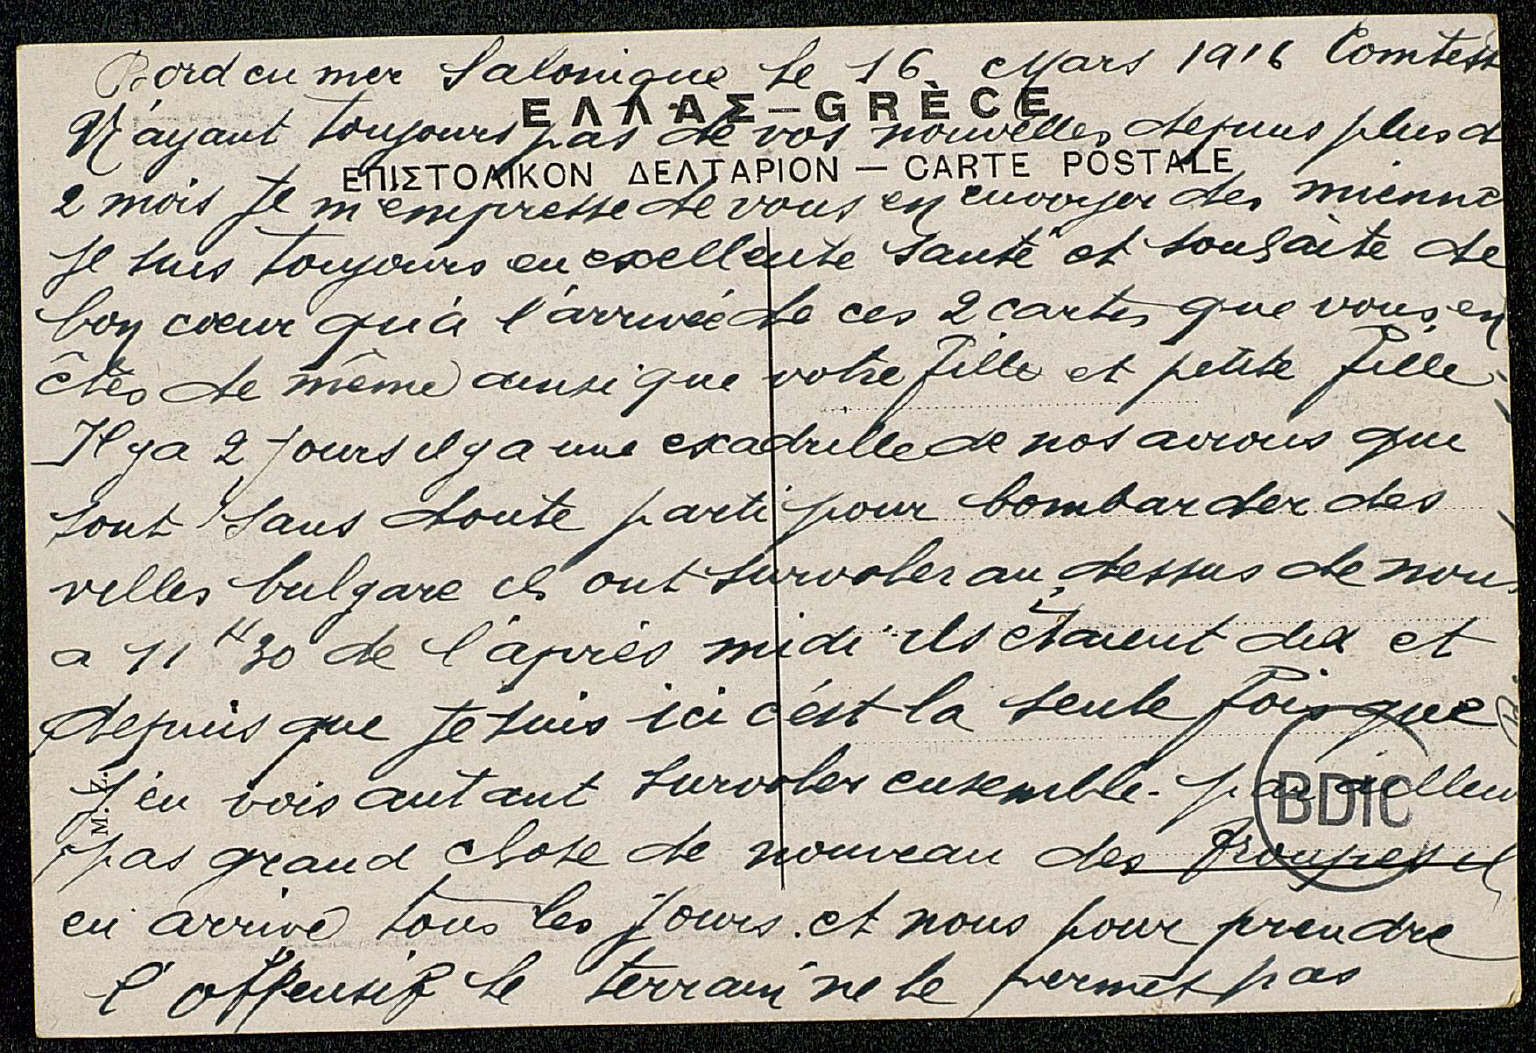 Bord en mer Salonique le 16 Mars 1916 Comtesse
ΕΛΛΑΣ – GRÈCE
N'ayant toujours pas de vos nouvelles depuis plus d
ΕΠΙΣΤΟΛΙΚΟΝ ΔΕΛΤΑΡΙΟΝ – CARTE POSTALE
2 mois Je m'empresse de vous en envoyer des mienne
Je suis toujours en excellente santé et souhaite de
bon cœur qu'à l'arrivée de ces 2 cartes que vous en
êtes de même ainsi que votre fille et petite fille
Il y a 2 Jours il y a une escadrille de nos avions que
sont sans doute parti pour bombarder des
villes bulgare ils ont survoler au dessus de nous
a 11 H 30 de l'après midi ils étaient dix et
depuis que Je suis ici c'est la seule fois que
J'en vois autant survoler ensemble. par ailleur
M. Z.
BDIC
pas grand chose de nouveau des troupes il
en arrive tous les Jours. et nous pour prendre
l'offensif le terrain ne le permet pas